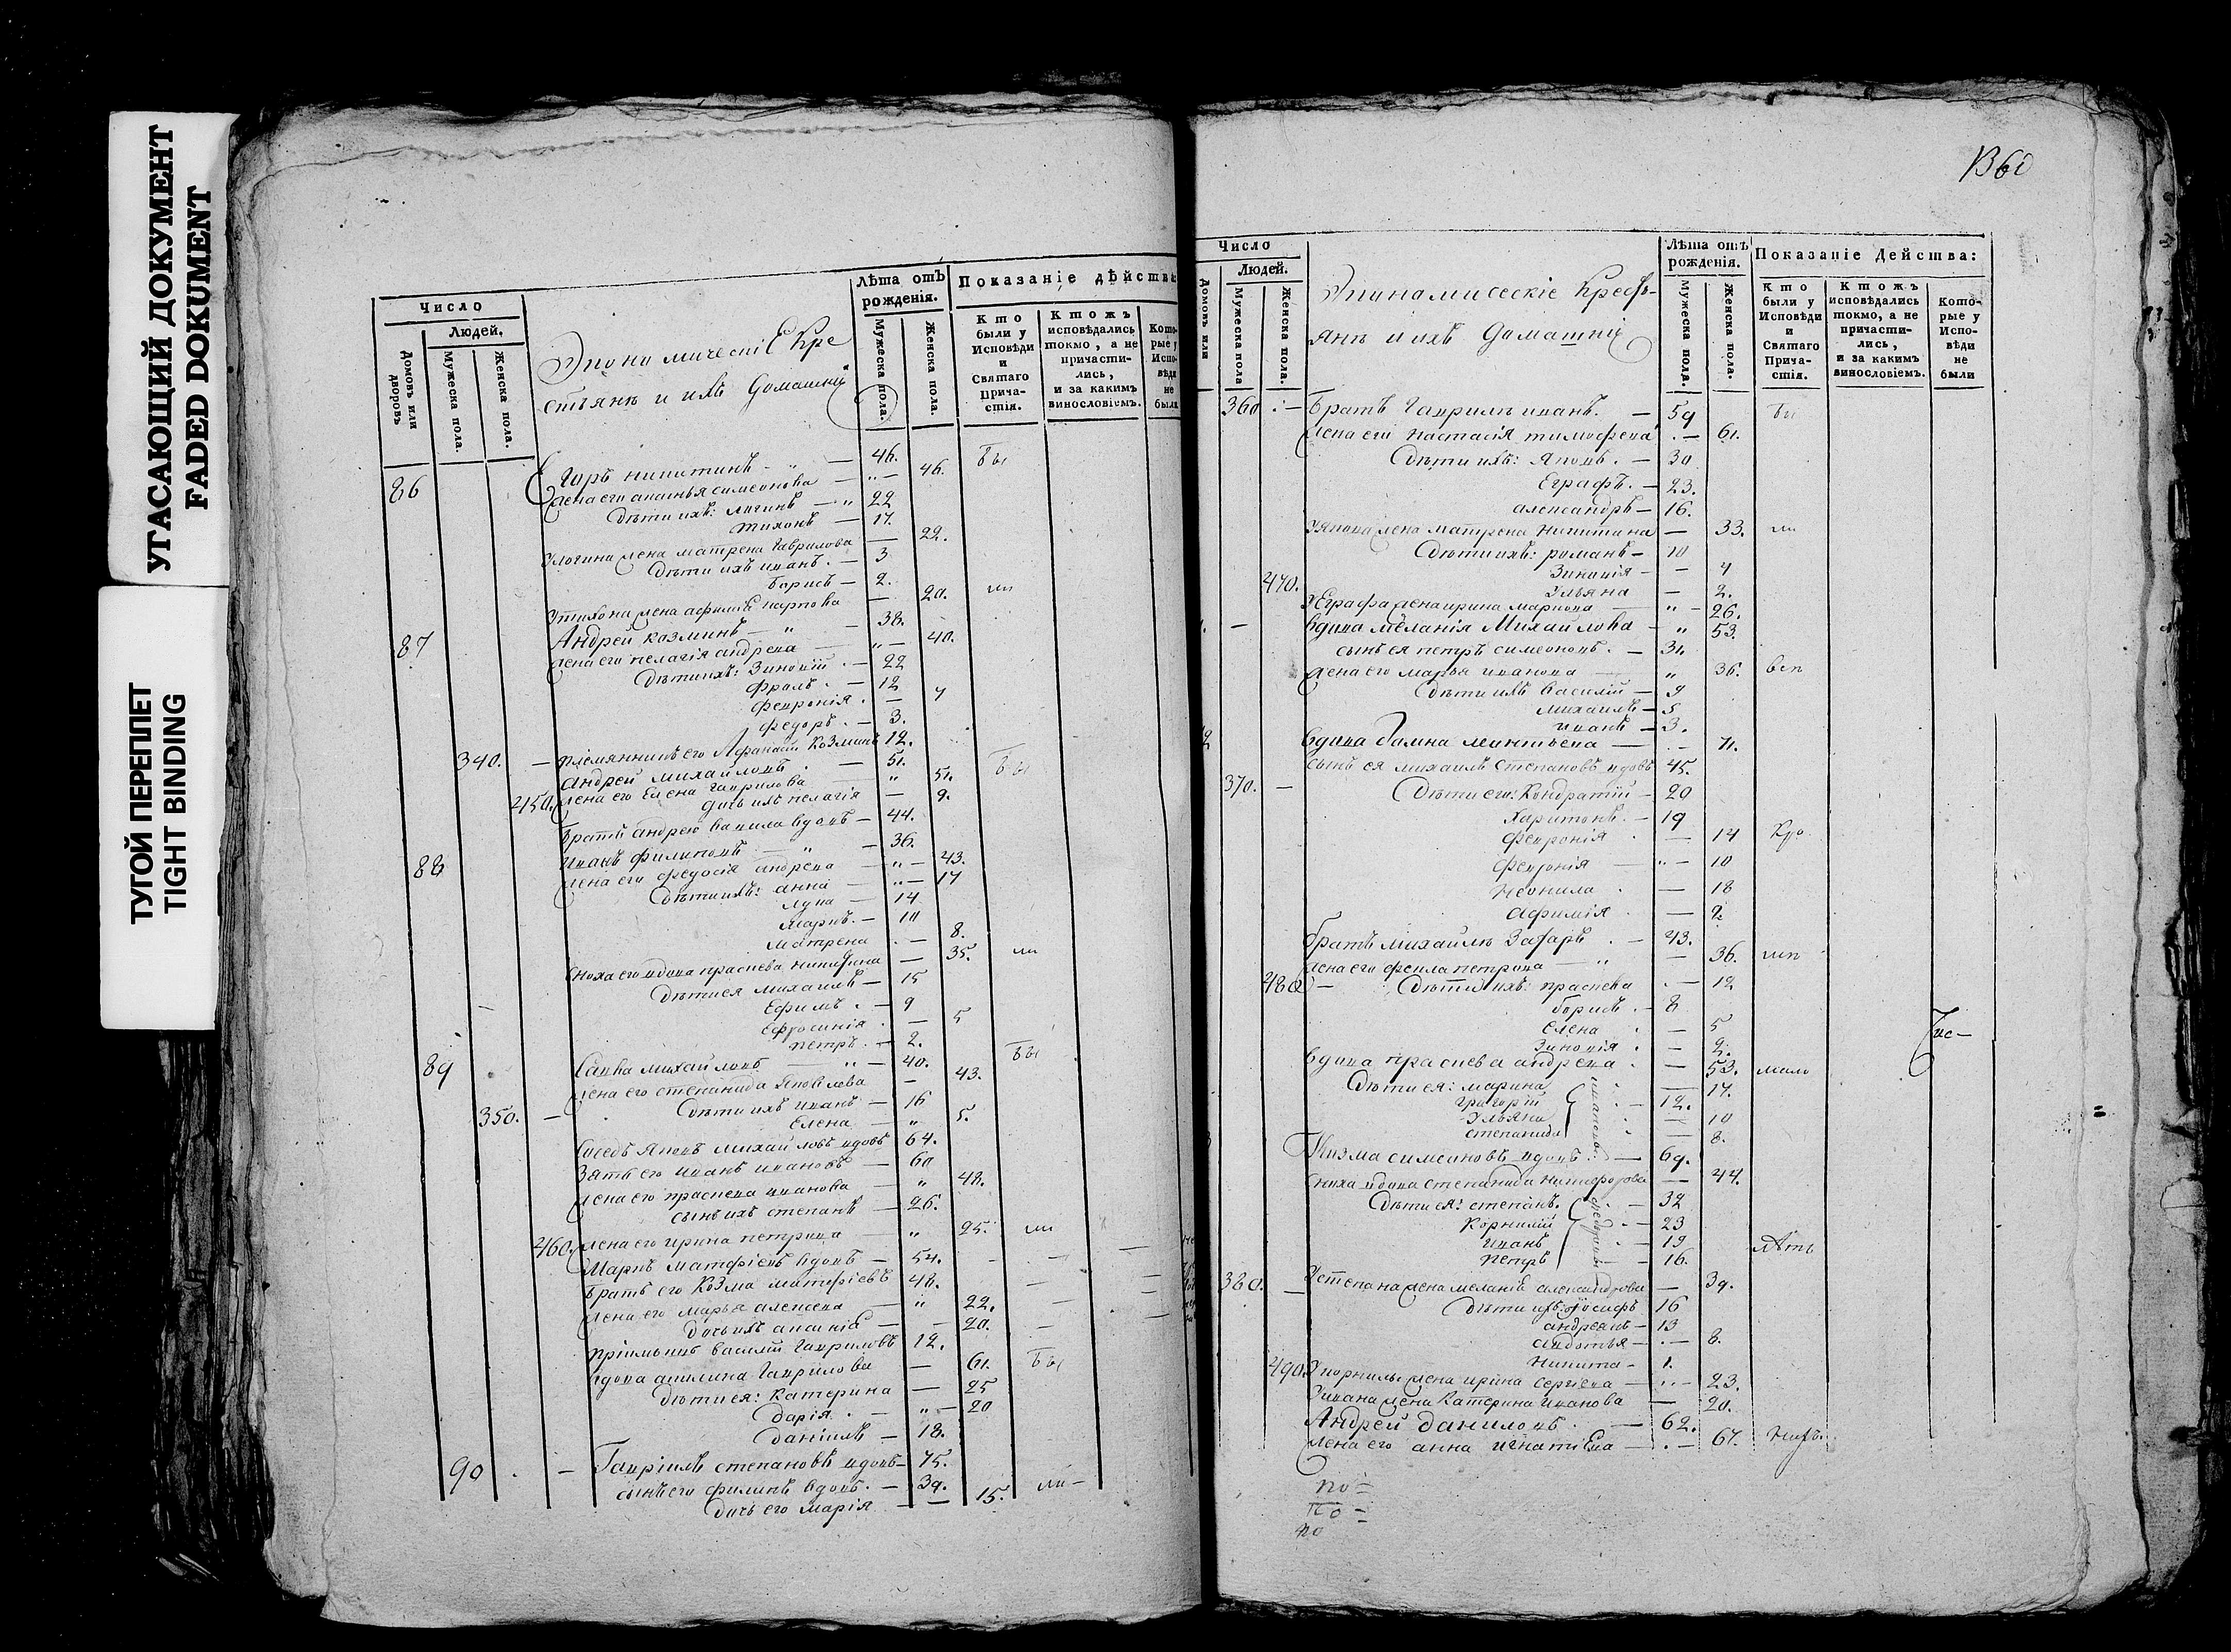 УГАСАЮЩИЙ ДОКУМЕНТ
FADED DOKUMENT
ТУГОЙ ПЕРЕПЛЕТ
TIGHT BINDING
Число
Людей.
Домовъ или дворовъ
Мужеска пола.
Женска пола.
Экономическіе Кре
стьянъ и ихъ Домашніи
Лѣта отъ рожденія.
Мужеска пола.
Женска пола.
Показаніе дѣйства
Кто были у Исповѣди и Святаго Прича-стія.
Ктожъ исповѣдались токмо, а не причасти-лись, и за какимъ винословіемъ.
Кото-рые у Испо-вѣди не были
86 Егоръ никитинъ — 46. бы
жена его симеонова — 46.
Дѣти ихъ: логинъ — 22
тихонъ — 17.
Улогина жена матрена Гаврилова — 22.
Дѣти ихъ иванъ. — 3
Борисъ — 2.
Утихона жена афимія карпова — 20. ли
87 Андрей козминъ — 38.
жена его пелагія андреева — 40.
Дѣти ихъ: Зиновій — 22
фролъ — 12
февронія — 7
федоръ — 3.
340. — племянникъ его Афанасій Козминъ 12.
Андрей михайловъ — 51. бы
450. жена его Елена гаврилова — 51.
дочь ихъ пелагія — 9.
братъ андрею вавила вдовъ — 44.
88 иванъ филиповъ — 36.
жена его федосія андреева — 43.
Дѣти ихъ: анна — 17
лука — 14
маркъ. — 10
матрена — 8.
сноха его вдова праскева никитина — 35. ли
Дѣти ея михаилъ — 15
Ефимъ. — 9
Ефросинія — 5
петръ — 2.
89 Савва михайловъ — 40. бы
жена его степанида Яковлева — 43.
350. — Дѣти ихъ иванъ — 16
Елена — 5.
сосѣдъ Яковъ михайловъ вдовъ 64.
Зять его иванъ ивановъ — 60
жена его праскева иванова — 48.
сынъ ихъ степанъ — 26.
460. жена его ирина петрова — 25. ли
Маркъ матфіевъ вдовъ — 54.
братъ его Козма матфіевъ 48.
жена его марья алексеева — 22.
дочь ихъ — 20.
пріимышъ василій Гавриловъ 12.
вдова акилина гаврилова — 61. бы
Дѣти ея: катерина — 25
дарія — 20
даніилъ — 18.
90 — Гавріилъ степановъ вдовъ — 75.
сынъ его филипъ вдовъ. — 39. ли
дочь его марія — 15.
Число
Людей.
Домовъ или
Мужеска пола
Женска пола.
Экономическіе Кресть-
янъ и ихъ Домашніи
Лѣта отъ рожденія.
Мужеска пола.
Женска пола.
Показаніе Действа:
Кто были у Исповѣди и Святаго Прича-стія.
Ктожъ исповѣдались токмо, а не причасти-лись, и за какимъ винословіемъ.
Кото-рые у Испо-вѣди не были
360 — братъ Гаврилъ иванъ. — 59 бы
жена его настасія тимофеева — 61.
Дѣти ихъ: Яковъ. — 30
Еграфъ. — 23.
александръ — 16.
Уякова жена матрена Никитина — 33. ли
Дѣти ихъ: романъ — 10
Зиновія — 4
470. Ульяна — 2.
УЕграфа жена ирина маркова — 26.
вдова меланія Михайлова — 53.
сынъ ея петръ симеоновъ. — 31.
жена его марья иванова — 36. всп
Дѣти ихъ Василій — 9
михаилъ — 5
иванъ — 3.
вдова — 71.
сынъ ея михаилъ степановъ вдовъ 45.
370. — Дѣти его: Кондратій — 20
Харитонъ. — 19
февронія — 14
февронія — 10
Неонила — 18
афимія — 9.
братъ михайлю Захаръ — 43.
жена его фекла петрова — 36.
480 — Дѣти ихъ: праскева — 12
борисъ — 8
Елена — 5
Зиновія — 2.
вдова праскева андреева — 53. мало
Дѣти ея: марина — 17.
григорій — 12.
Ульяна — 10
степанида — 8.
Козма симеоновъ вдовъ — 69.
сноха вдова степанида никифорова — 44.
Дѣти ея: степанъ. — 32
Корнилій — 23
иванъ — 19
петръ — 16.
380. — Устепана жена меланія александрова — 39.
Дѣти ихъ: іосифъ 16
андреянъ — 13
авдотья — 8.
никита — 1.
490. Укорнилы жена ирина сергіева — 23.
Уивана жена Катерина Иванова — 20.
Андрей даниловъ — 62.
жена его анна игнатіева — 67.
по =
по =
по